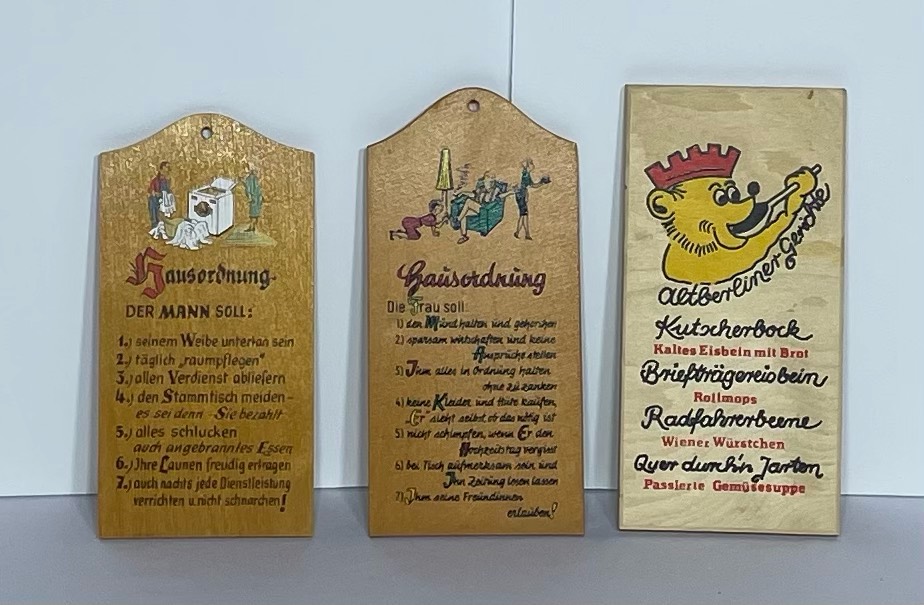 Hausordnung
DER MANN SOLL:
1.) seinem Weibe untertan sein
2.) täglich „raumpflegen"
3.) allen Verdienst abliefern
4.) den Stammtisch meiden –
es sei denn – Sie bezahlt
5.) alles schlucken
auch angebranntes Essen
6.) Ihre Launen freudig ertragen
7.) auch nachts jede Dienstleistung
verrichten u. nicht schnarchen!
Hausordnung
Die Frau soll:
1) den Mund halten und gehorchen
2) sparsam wirtschaften und keine
Ansprüche stellen
3) Ihm alles in Ordnung halten
ohne zu zanken
4) keine Kleider und Hüte kaufen,
„Er" sieht selbst, ob das nötig ist
5) nicht schimpfen, wenn Er den
Hochzeitstag vergisst
6) bei Tisch aufmerksam sein und
Ihn Zeitung lesen lassen
7) Ihm seine Freundinnen
erlauben!
Altberliner Gerichte
Kutscherbock
Kaltes Eisbein mit Brot
Briefträgereisbein
Rollmops
Radfahrerbeene
Wiener Würstchen
Quer durch'n Jarten
Passierte Gemüsesuppe